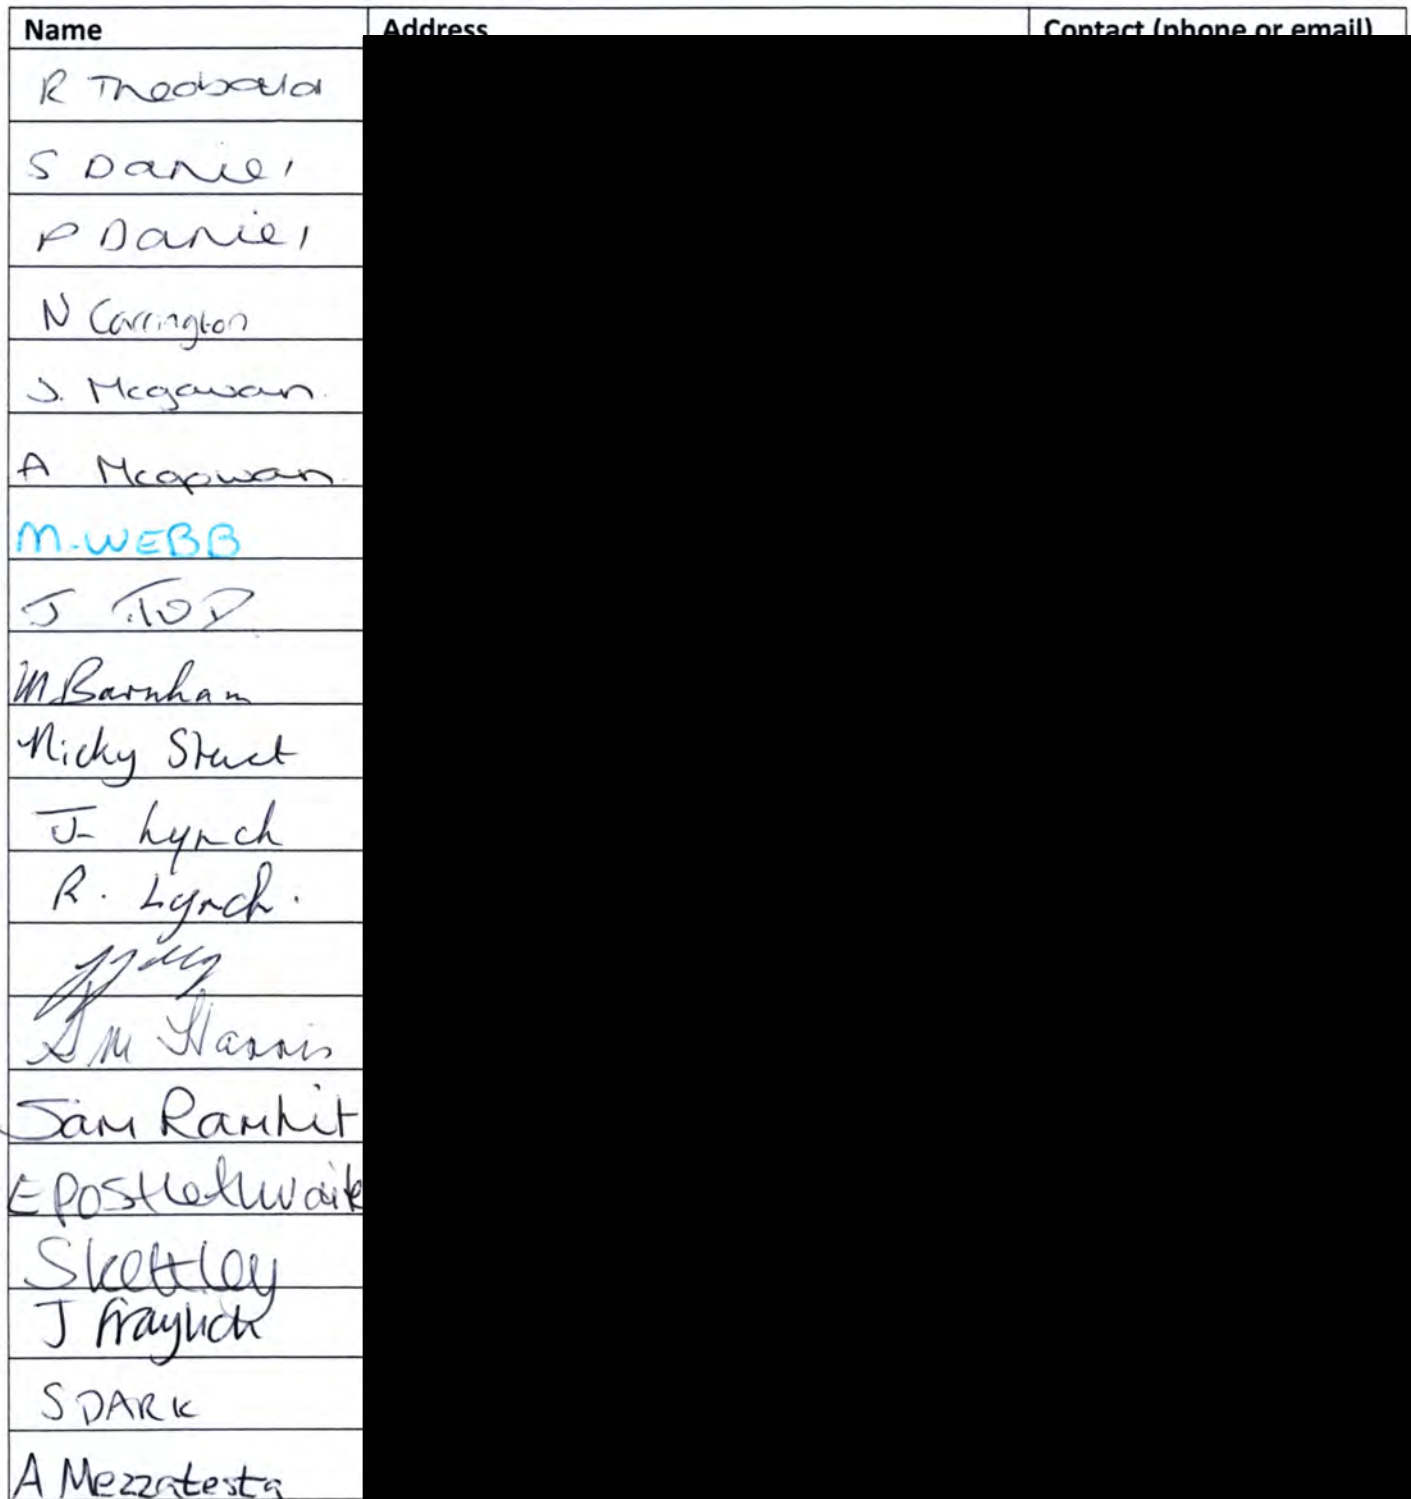 Name Address Contact (phone or email)
R Theobald
S Daniel
P Daniel
N Carrington
J. Mcgowan.
A Mcgowan.
M. WEBB
J TOD
M Barnham
Nicky
J Lynch
R. Lynch.
M Harris
Sam
E Postlethwaite
Skettley
J
S DARK
A Mezzatesta